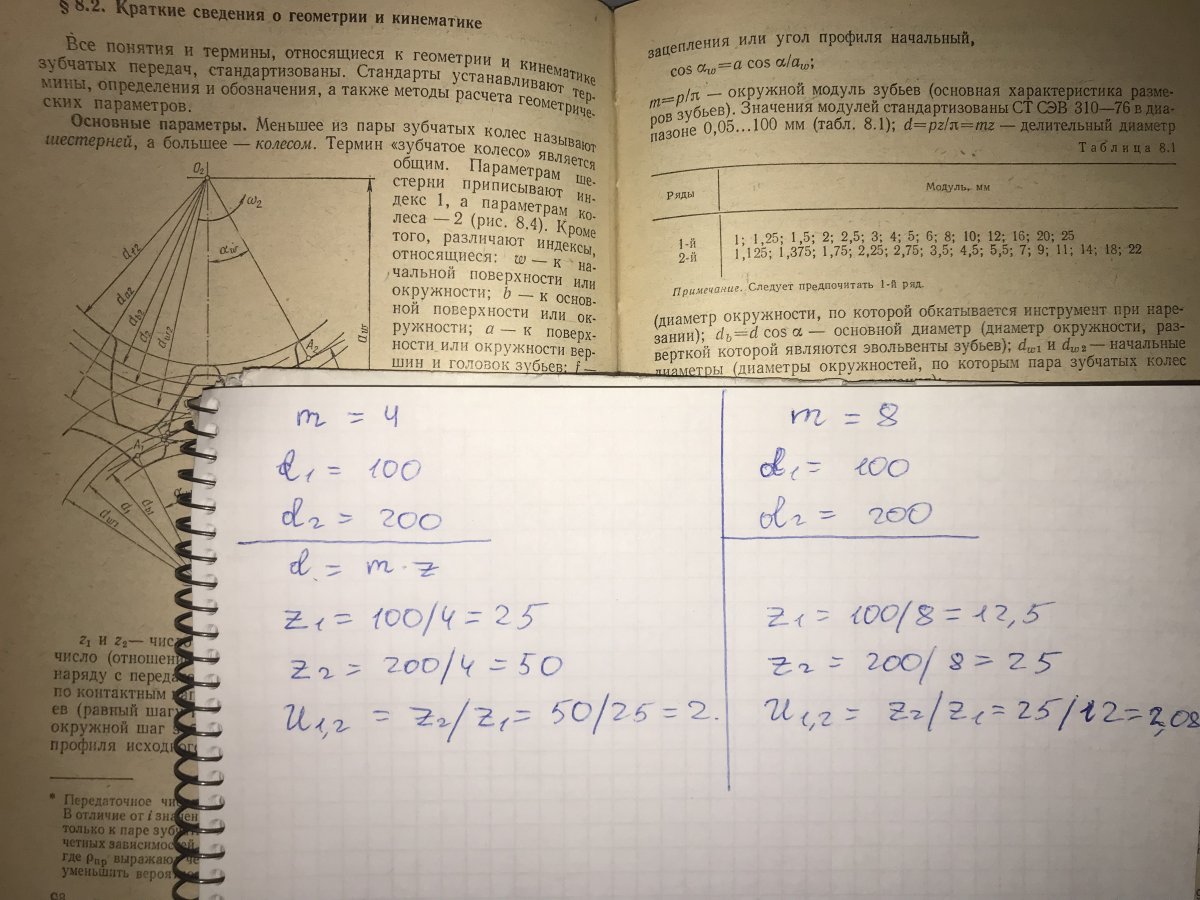 § 8.2. Краткие сведения о геометрии и кинематике
Все понятия и термины, относящиеся к геометрии и кинематике
зубчатых передач, стандартизованы. Стандарты устанавливают тер-
мины, определения и обозначения, а также методы расчета геометриче-
ских параметров.
Основные параметры. Меньшее из пары зубчатых колес называют
шестерней, а большее — колесом. Термин «зубчатое колесо» является
общим. Параметрам ше-
стерни приписывают ин-
декс 1, а параметрам ко-
леса — 2 (рис. 8.4). Кроме
того, различают индексы,
относящиеся: w — к на-
чальной поверхности или
окружности; b — к основ-
ной поверхности или ок-
ружности; a — к поверх-
ности или окружности вер-
шин и головок зубьев; f —
O₂
ω₂
α_w
d_f2
d_a2
d_b2
d₂
d_w2
a_w
A₂
A₁
d_w1
d₁
z₁ и z₂ — число
число (отношени
наряду с переда
по контактным
ев (равный шагу
окружной шаг
профиля исходного
* Передаточное чи
В отличие от i значен
только к паре зубч
четных зависимостей
где ρпр выражаю
уменьшить вероятнос
зацепления или угол профиля начальный,
cos α_w = a cos α/a_w;
m=p/π — окружной модуль зубьев (основная характеристика разме-
ров зубьев). Значения модулей стандартизованы СТ СЭВ 310—76 в диа-
пазоне 0,05...100 мм (табл. 8.1); d=pz/π=mz — делительный диаметр
Таблица 8.1
Ряды Модуль, мм
1-й 1; 1,25; 1,5; 2; 2,5; 3; 4; 5; 6; 8; 10; 12; 16; 20; 25
2-й 1,125; 1,375; 1,75; 2,25; 2,75; 3,5; 4,5; 5,5; 7; 9; 11; 14; 18; 22
Примечание. Следует предпочитать 1-й ряд.
(диаметр окружности, по которой обкатывается инструмент при наре-
зании); d_b=d cos α — основной диаметр (диаметр окружности, раз-
верткой которой являются эвольвенты зубьев); d_w1 и d_w2 — начальные
диаметры (диаметры окружностей, по которым пара зубчатых колес
m = 4
d₁ = 100
d₂ = 200
d = m·z
z₁ = 100/4 = 25
z₂ = 200/4 = 50
U₁,₂ = z₂/z₁ = 50/25 = 2.
m = 8
d₁ = 100
d₂ = 200
z₁ = 100/8 = 12,5
z₂ = 200/8 = 25
U₁,₂ = z₂/z₁ = 25/12 = 2,08